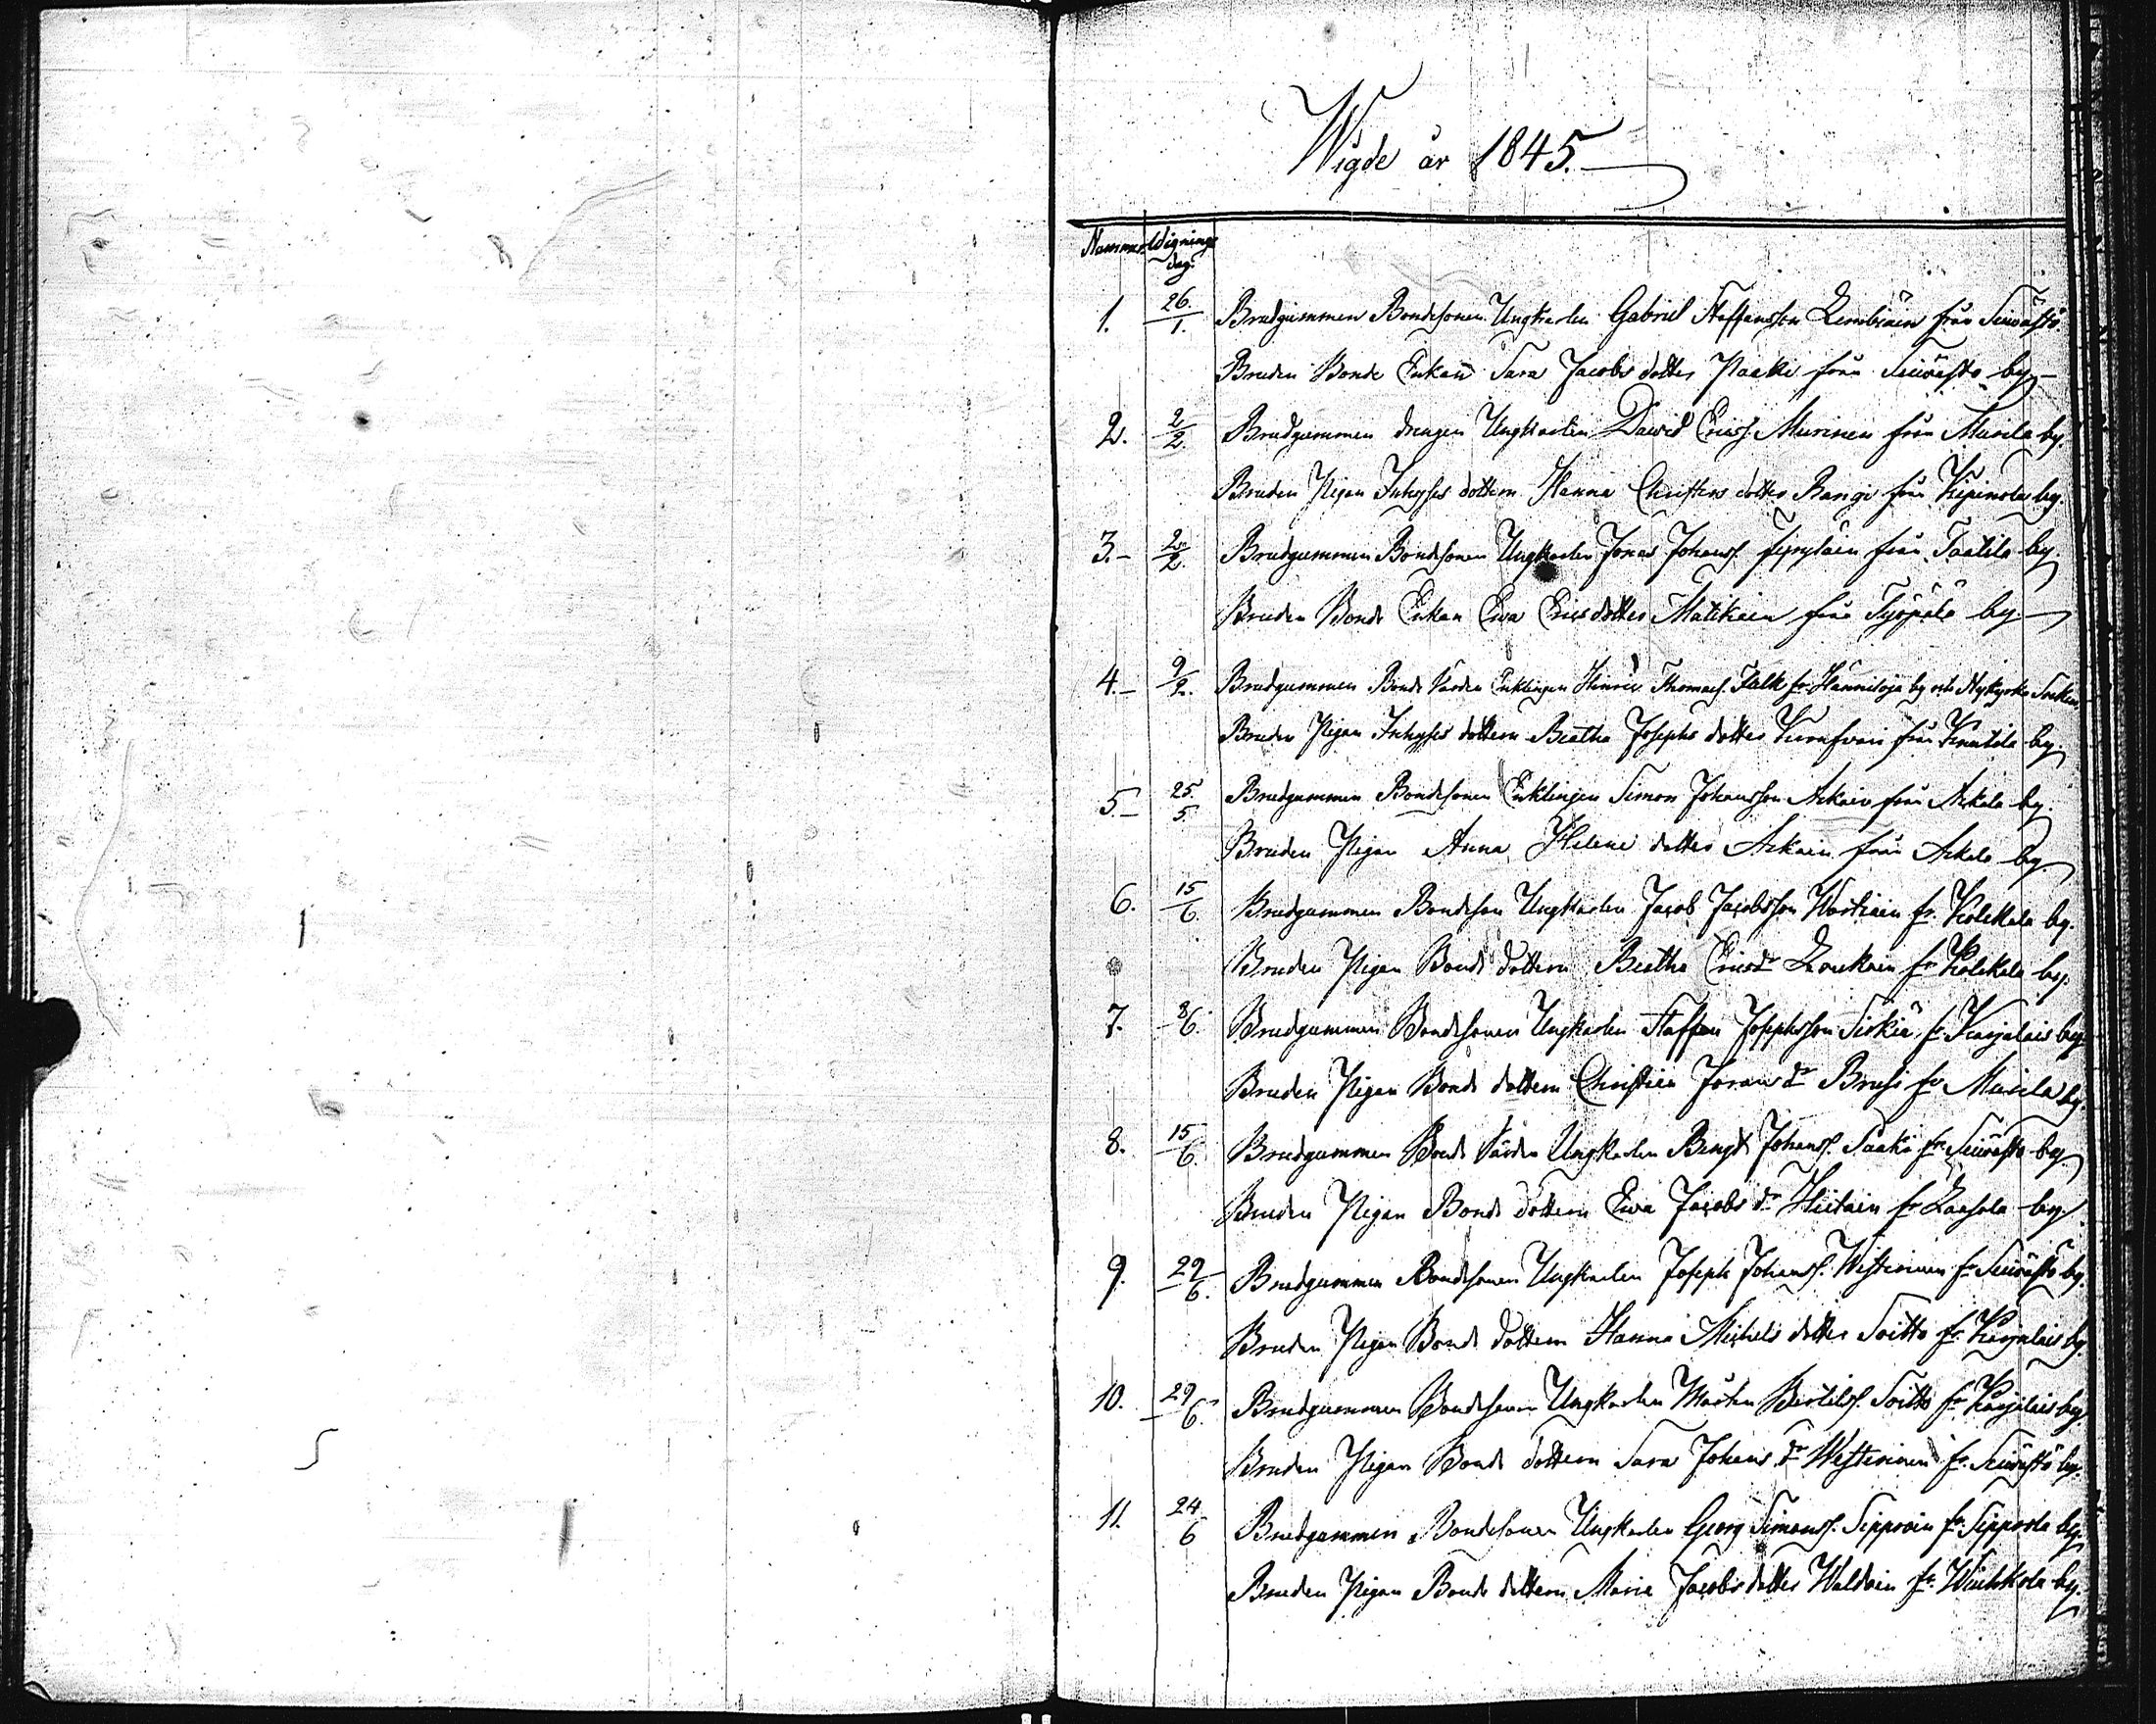 Wigde år 1845.
Nummer Wignings
dag.
1. 26./1. Brudgummen Bondesonen Ungkarlen Gabriel Staffansson Lembiäin från Seivästö
Bruden Bonde Enkan Sara Jacobs dotter Paaki från Seivästö by
2. 2/2. Brudgummen drengen Ungkarlen David Ericss. Murinen från Murila by.
Bruden Pigan Inhyses dottern Hanna Christers dotter Rangi från Kipinola by.
3. 2/2. Brudgummen Bondesonen Ungkarlen Jonas Johanss. från Taatila by.
Bruden Bonde Enkan Ewa Erics dotter Matikain från Työpölö by
4. 9/2. Brudgummen Bonde Värden Enklingen Hinric Thomass. Falk fr. Hannitoja by och Nykyrka Socken
Bruden Pigan Inhyses dottern Beatha Josephs dotter från by.
5. 25./5. Brudgummen Bondesonen Enklingen Simon Johansson Arkain från Arkela by.
Bruden Pigan Anna Helene dotter Arkain från Arkela by
6. 15/6. Brudgummen Bondeson Ungkarlen Jacob Jacobsson Wartiain fr. Kolekala by.
Bruden Pigan Bonde dottern Beatha Ericsdr Loukain fr Kolekala by.
7. 8/6. Brudgummen Bondesonen Ungkarlen Staffan Josephsson Sirkiä fr. Karjalais by
Bruden Pigan Bonde dottern Christin Jörans dr Brusi fr Murila by.
8. 15/6. Brudgummen Bonde Värden Ungkarlen Bengt Johanss. Paaki fr Seivästö by.
Bruden Pigan Bonde dottern Ewa Jacobs dr Hietain fr Laasola by.
9. 29/6. Brudgummen Bondesonen Ungkarlen Joseph Johanss. Westerinen fr Seivästö by.
Bruden Pigan Bonde dottern Hanna Michels dotter Soitto fr Karjalais by.
10. 29/6. Brudgummen Bondesonen Ungkarlen Mårten Bertilss. Soitto fr Karjalais by
Bruden Pigan Bonde dottern Sara Johans dr Westerinen fr. Seivästö by.
11. 24/6 Brudgummen Bondesonen Ungkarlen Georg Simonss. Sipproin fr. Sipprola by.
Bruden Pigan Bonde dottern Maria Jacobs dotter Waldoin fr. Wiukkola by.